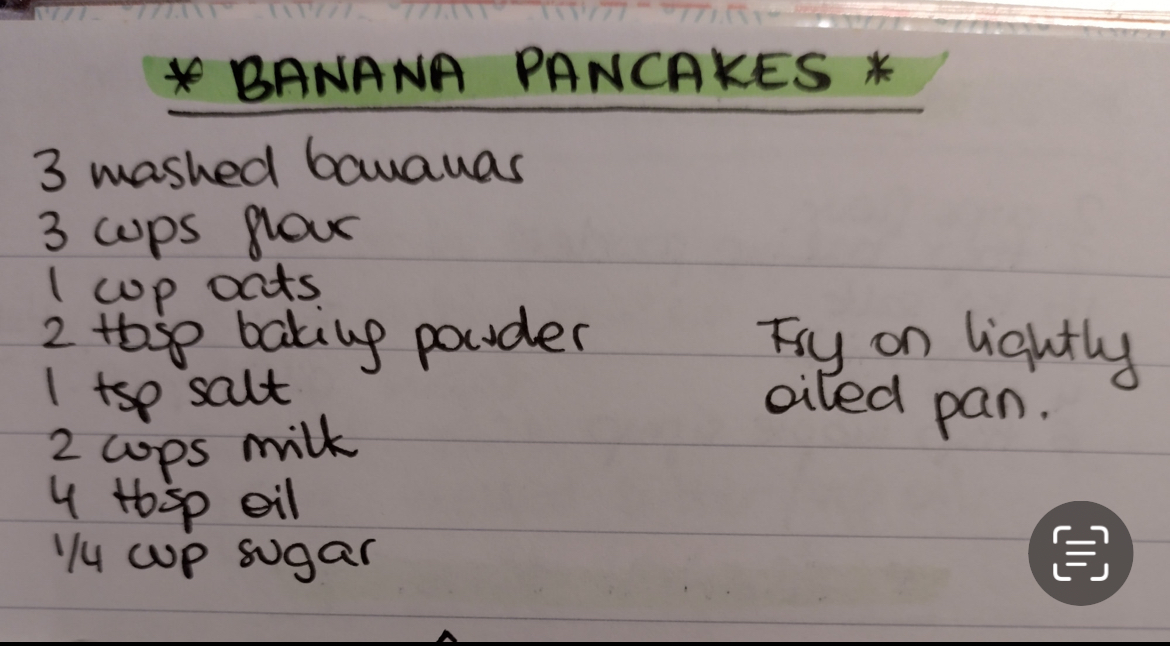 * BANANA PANCAKES *
3 mashed bananas
3 cups flour
1 cup oats
2 tbsp baking powder
1 tsp salt
2 cups milk
4 tbsp oil
1/4 cup sugar
Fry on lightly
oiled pan.